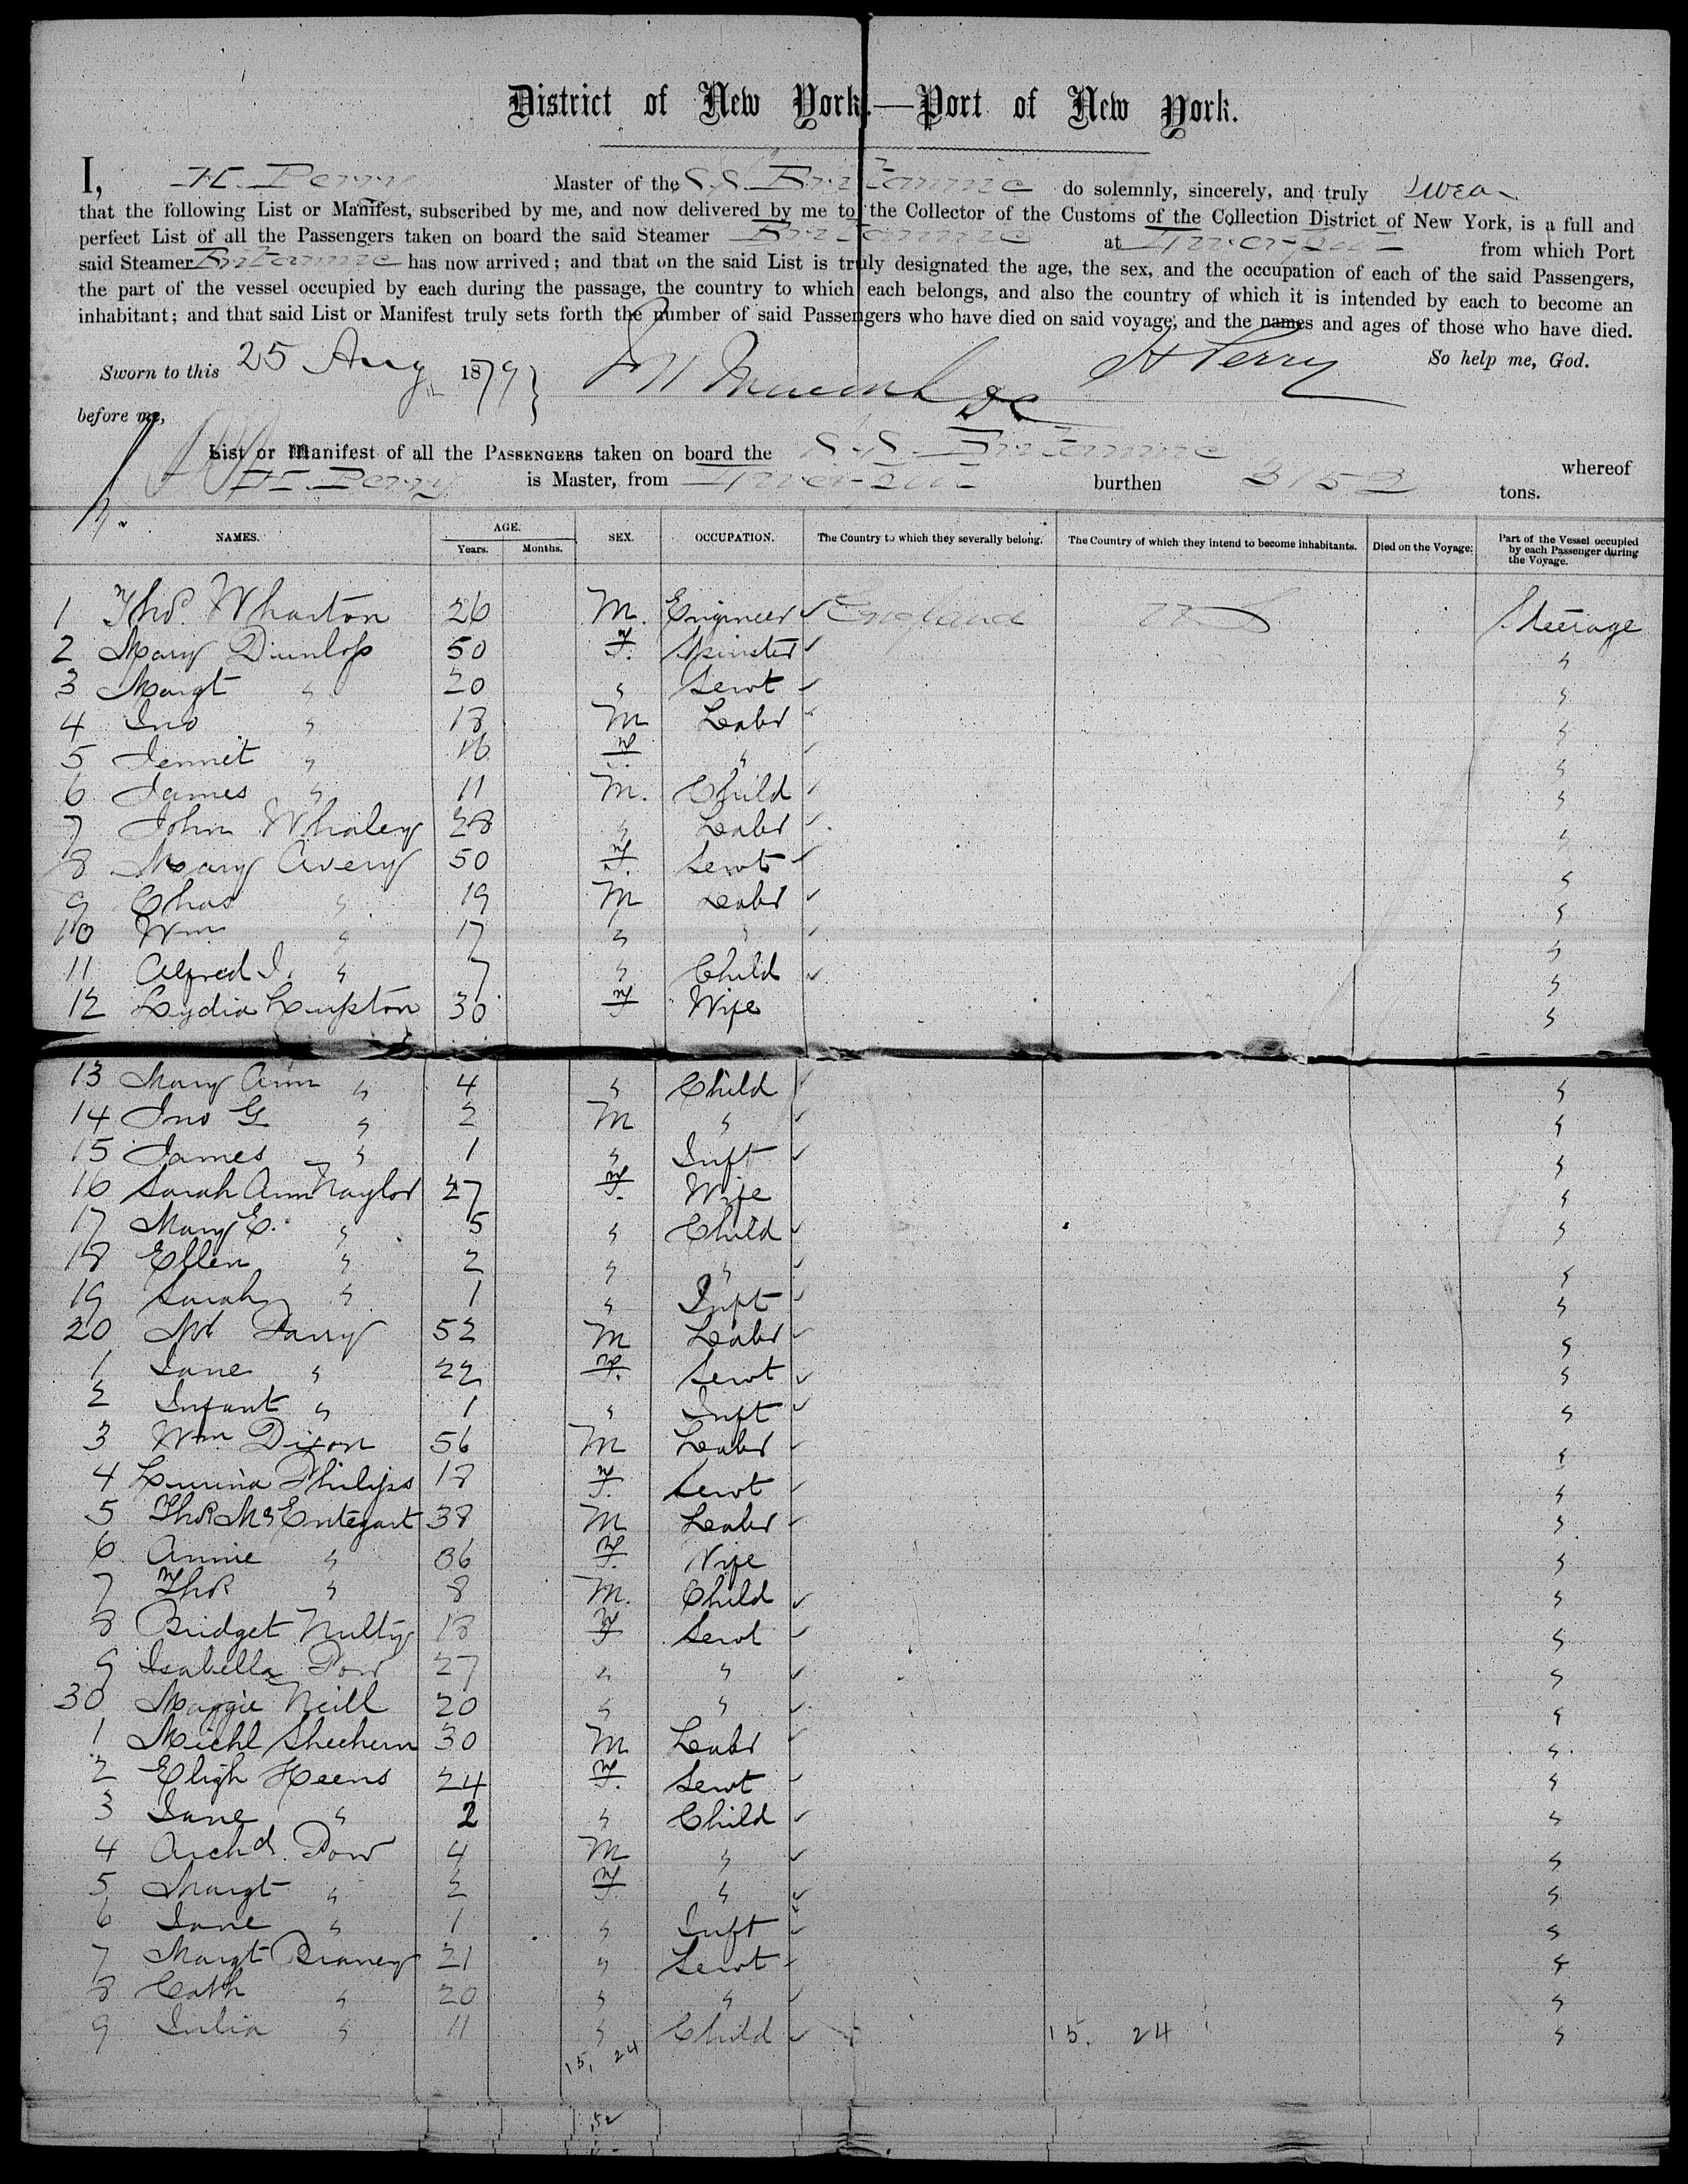 District of New York.—Port of New York.
I, H. Perry Master of the S.S. Britannic do solemnly, sincerely, and truly swear
that the following List or Manifest, subscribed by me, and now delivered by me to the Collector of the Customs of the Collection District of New York, is a full and
perfect List of all the Passengers taken on board the said Steamer Britannic at Liverpool from which Port
said Steamer Britannic has now arrived; and that on the said List is truly designated the age, the sex, and the occupation of each of the said Passengers,
the part of the vessel occupied by each during the passage, the country to which each belongs, and also the country of which it is intended by each to become an
inhabitant; and that said List or Manifest truly sets forth the number of said Passengers who have died on said voyage, and the names and ages of those who have died.
So help me, God.
Sworn to this 25 Aug 1879 H Perry
before me,
List or Manifest of all the PASSENGERS taken on board the S.S. Britannic whereof
H. Perry is Master, from Liverpool burthen 3152 tons.
NAMES. AGE. SEX. OCCUPATION. The Country to which they severally belong. The Country of which they intend to become inhabitants. Died on the Voyage. Part of the Vessel occupied by each Passenger during the Voyage.
Years. Months.
1 Thos. Wharton 26 M. Engineer England U S Steerage
2 Mary Dunlop 50 F. Spinster "
3 Margt " 20 " Servt "
4 Jno " 18 M Labr "
5 Jennet " 16 F. " "
6 James " 11 M. Child "
7 John Whaley 28 " Labr "
8 Mary Avery 50 F. Servt "
9 Chas " 19 M Labr "
10 Wm " 17 " " "
11 Alfred J. " 7 " Child "
12 Lydia Lupton 30 F Wife "
13 Mary Ann " 4 " Child "
14 Jno G " 2 M " "
15 James " 1 " Inft "
16 Sarah Ann Naylor 27 F. Wife "
17 Mary E. " 5 " Child "
18 Ellen " 2 " " "
19 Sarah " 1 " Inft "
20 Parry 52 M Labr "
1 Jane " 22 F. Servt "
2 Infant " 1 " Inft "
3 Wm Dixon 56 M Labr "
4 Philips 18 F. Servt "
5 Thos McEntegart 38 M Labr "
6 Annie " 36 F. Wife "
7 Thos " 8 M. Child "
8 Bridget Nulty 18 F Servt "
9 Isabella Pow 27 " " "
30 Maggie Neill 20 " " "
1 Michl Shechern 30 M Labr "
2 Eligh Keens 24 F. Servt "
3 Jane " 2 " Child "
4 Archd. Pow 4 M " "
5 Margt " 2 F. " "
6 Jane " 1 " Inft "
7 Margt Braney 21 " Servt "
8 Cath " 20 " " "
9 Julia " 11 " Child "
15. 24
15, 24